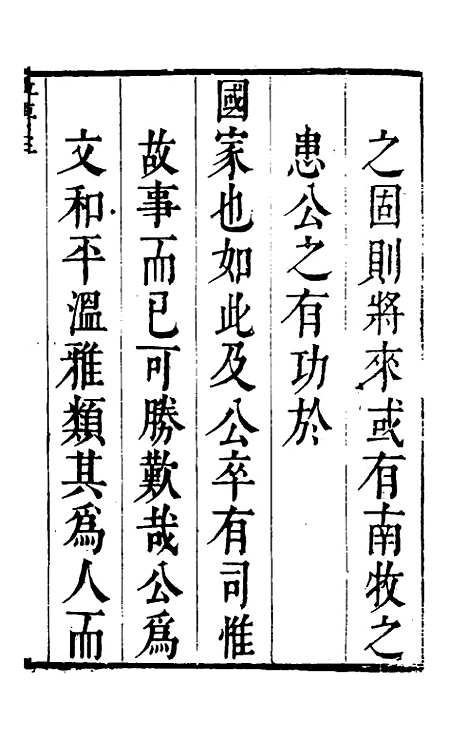 之固則將來或有南牧之
患公之有功於
國家也如此及公卒有司惟
故事而已可勝歎哉公爲
文和平溫雅類其爲人而